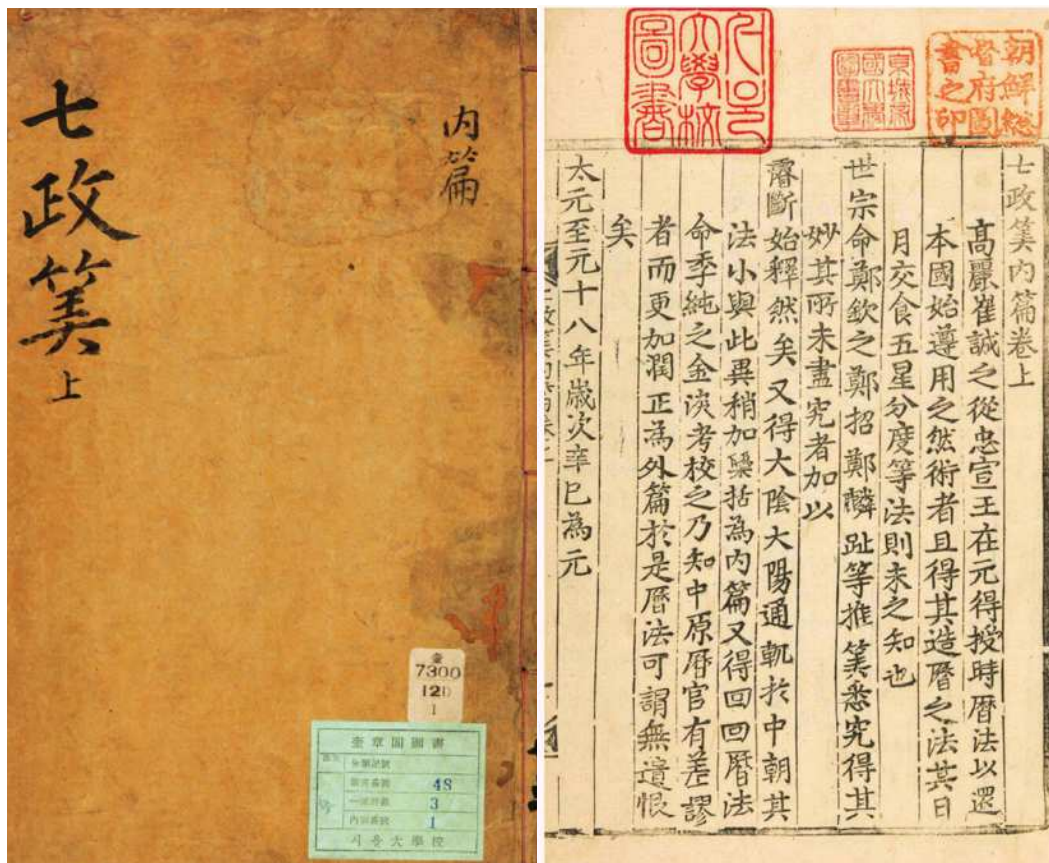 七政筭
上
内篇
奎
7300
12D
1
奎章閣圖書
48
3
1
서울大學校
朝鮮總督府圖書之印
서울大學校圖書
七政筭内篇卷上
高麗崔誠之從忠宣王在元得授時曆法以還
本國始遵用之然術者且得其造曆之法其日
月交食五星分度等法則未之知也
世宗命鄭欽之鄭招鄭麟趾等推筭悉究得其
妙其所未盡究者加以
睿斷始釋然矣又得大陰大陽通軌於中朝其
法小與此異稍加櫽括為内篇又得回回曆法
命李純之金淡考校之乃知中原曆官有差謬
者而更加潤正為外篇於是曆法可謂無遺恨
矣
太元至元十八年歲次辛巳為元